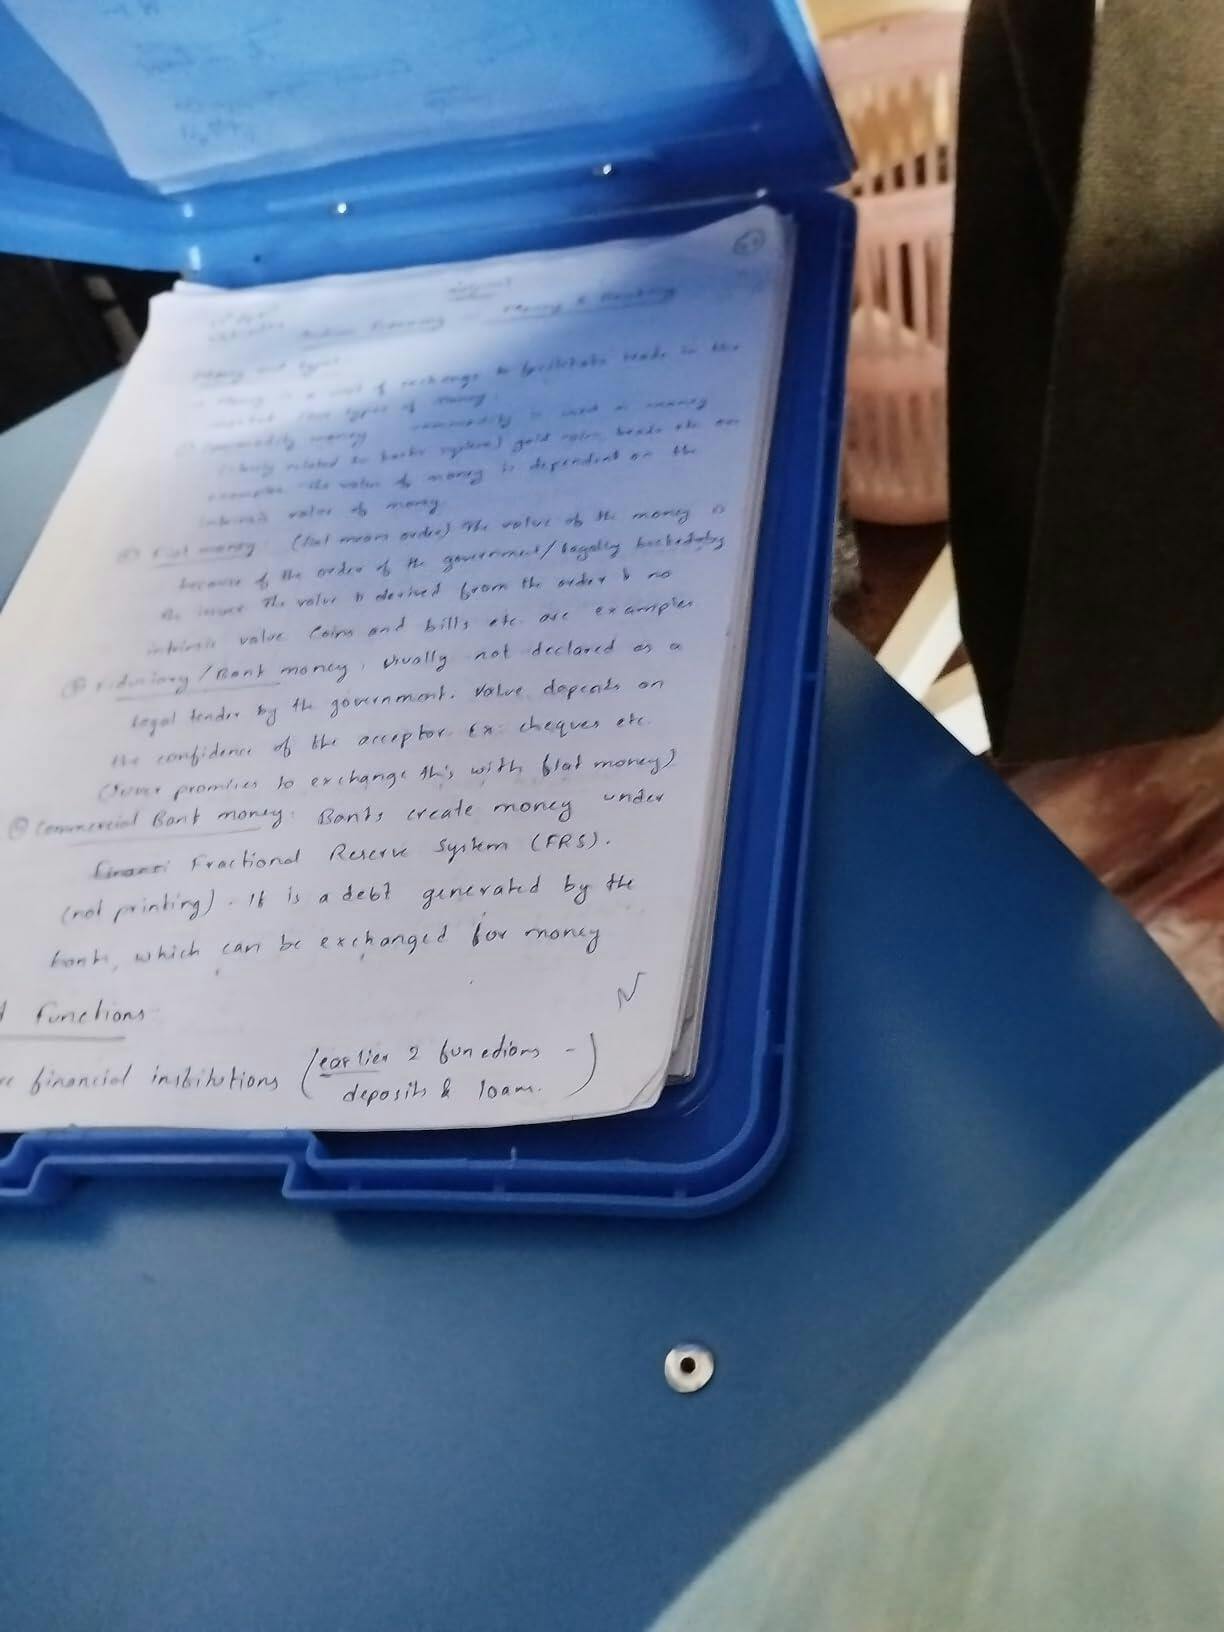 Money & Banking
Money and types
Money is a unit of exchange to facilitate trade in the
types of money.
Commodity money commodity is used as money
gold coins, beads etc are
examples. The value of money is dependent on the
intrinsic value of money
Fiat money: (fiat means order) The value of the money is
because of the order of the government/legally backed by
The value is derived from the order & no
intrinsic value Coins and bills etc. are examples
Fiduciary / Bank money, usually not declared as a
legal tender by the government. Value depends on
the confidence of the acceptor. Ex: cheques etc.
promises to exchange this with fiat money)
Commercial Bank money: Banks create money under
Fractional Reserve System (FRS).
(not printing). It is a debt generated by the
bank, which can be exchanged for money
functions
financial institutions (earlier 2 functions -
deposits & loans.)